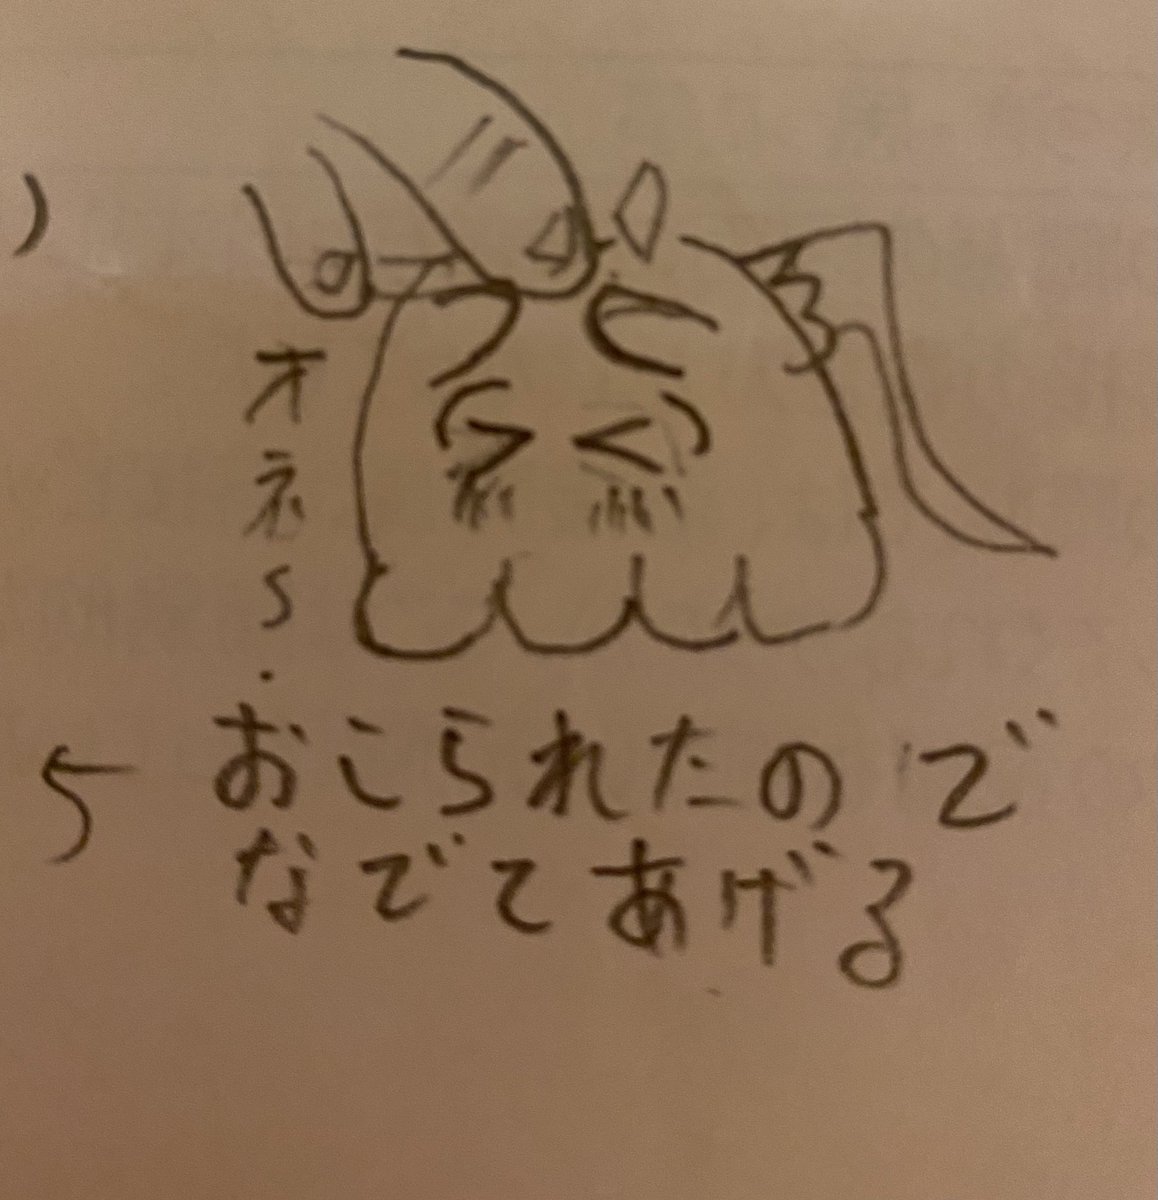 オネS.
おこられたので
なでてあげる